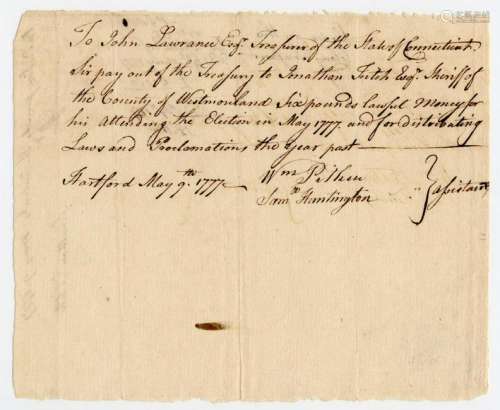 To John Lawrance Esqr. Treasurer of the State of Connecticut
Sir pay out of the Treasury to Jonathan Fitch Esqr. Sheriff of
the County of Westmorland Six pounds lawful Money for
his Attending the Election in May 1777. and for distributing
Laws and Proclamations the year past
Hartford May 9th. 1777
Wm Pitkin
Saml Huntington } assistants